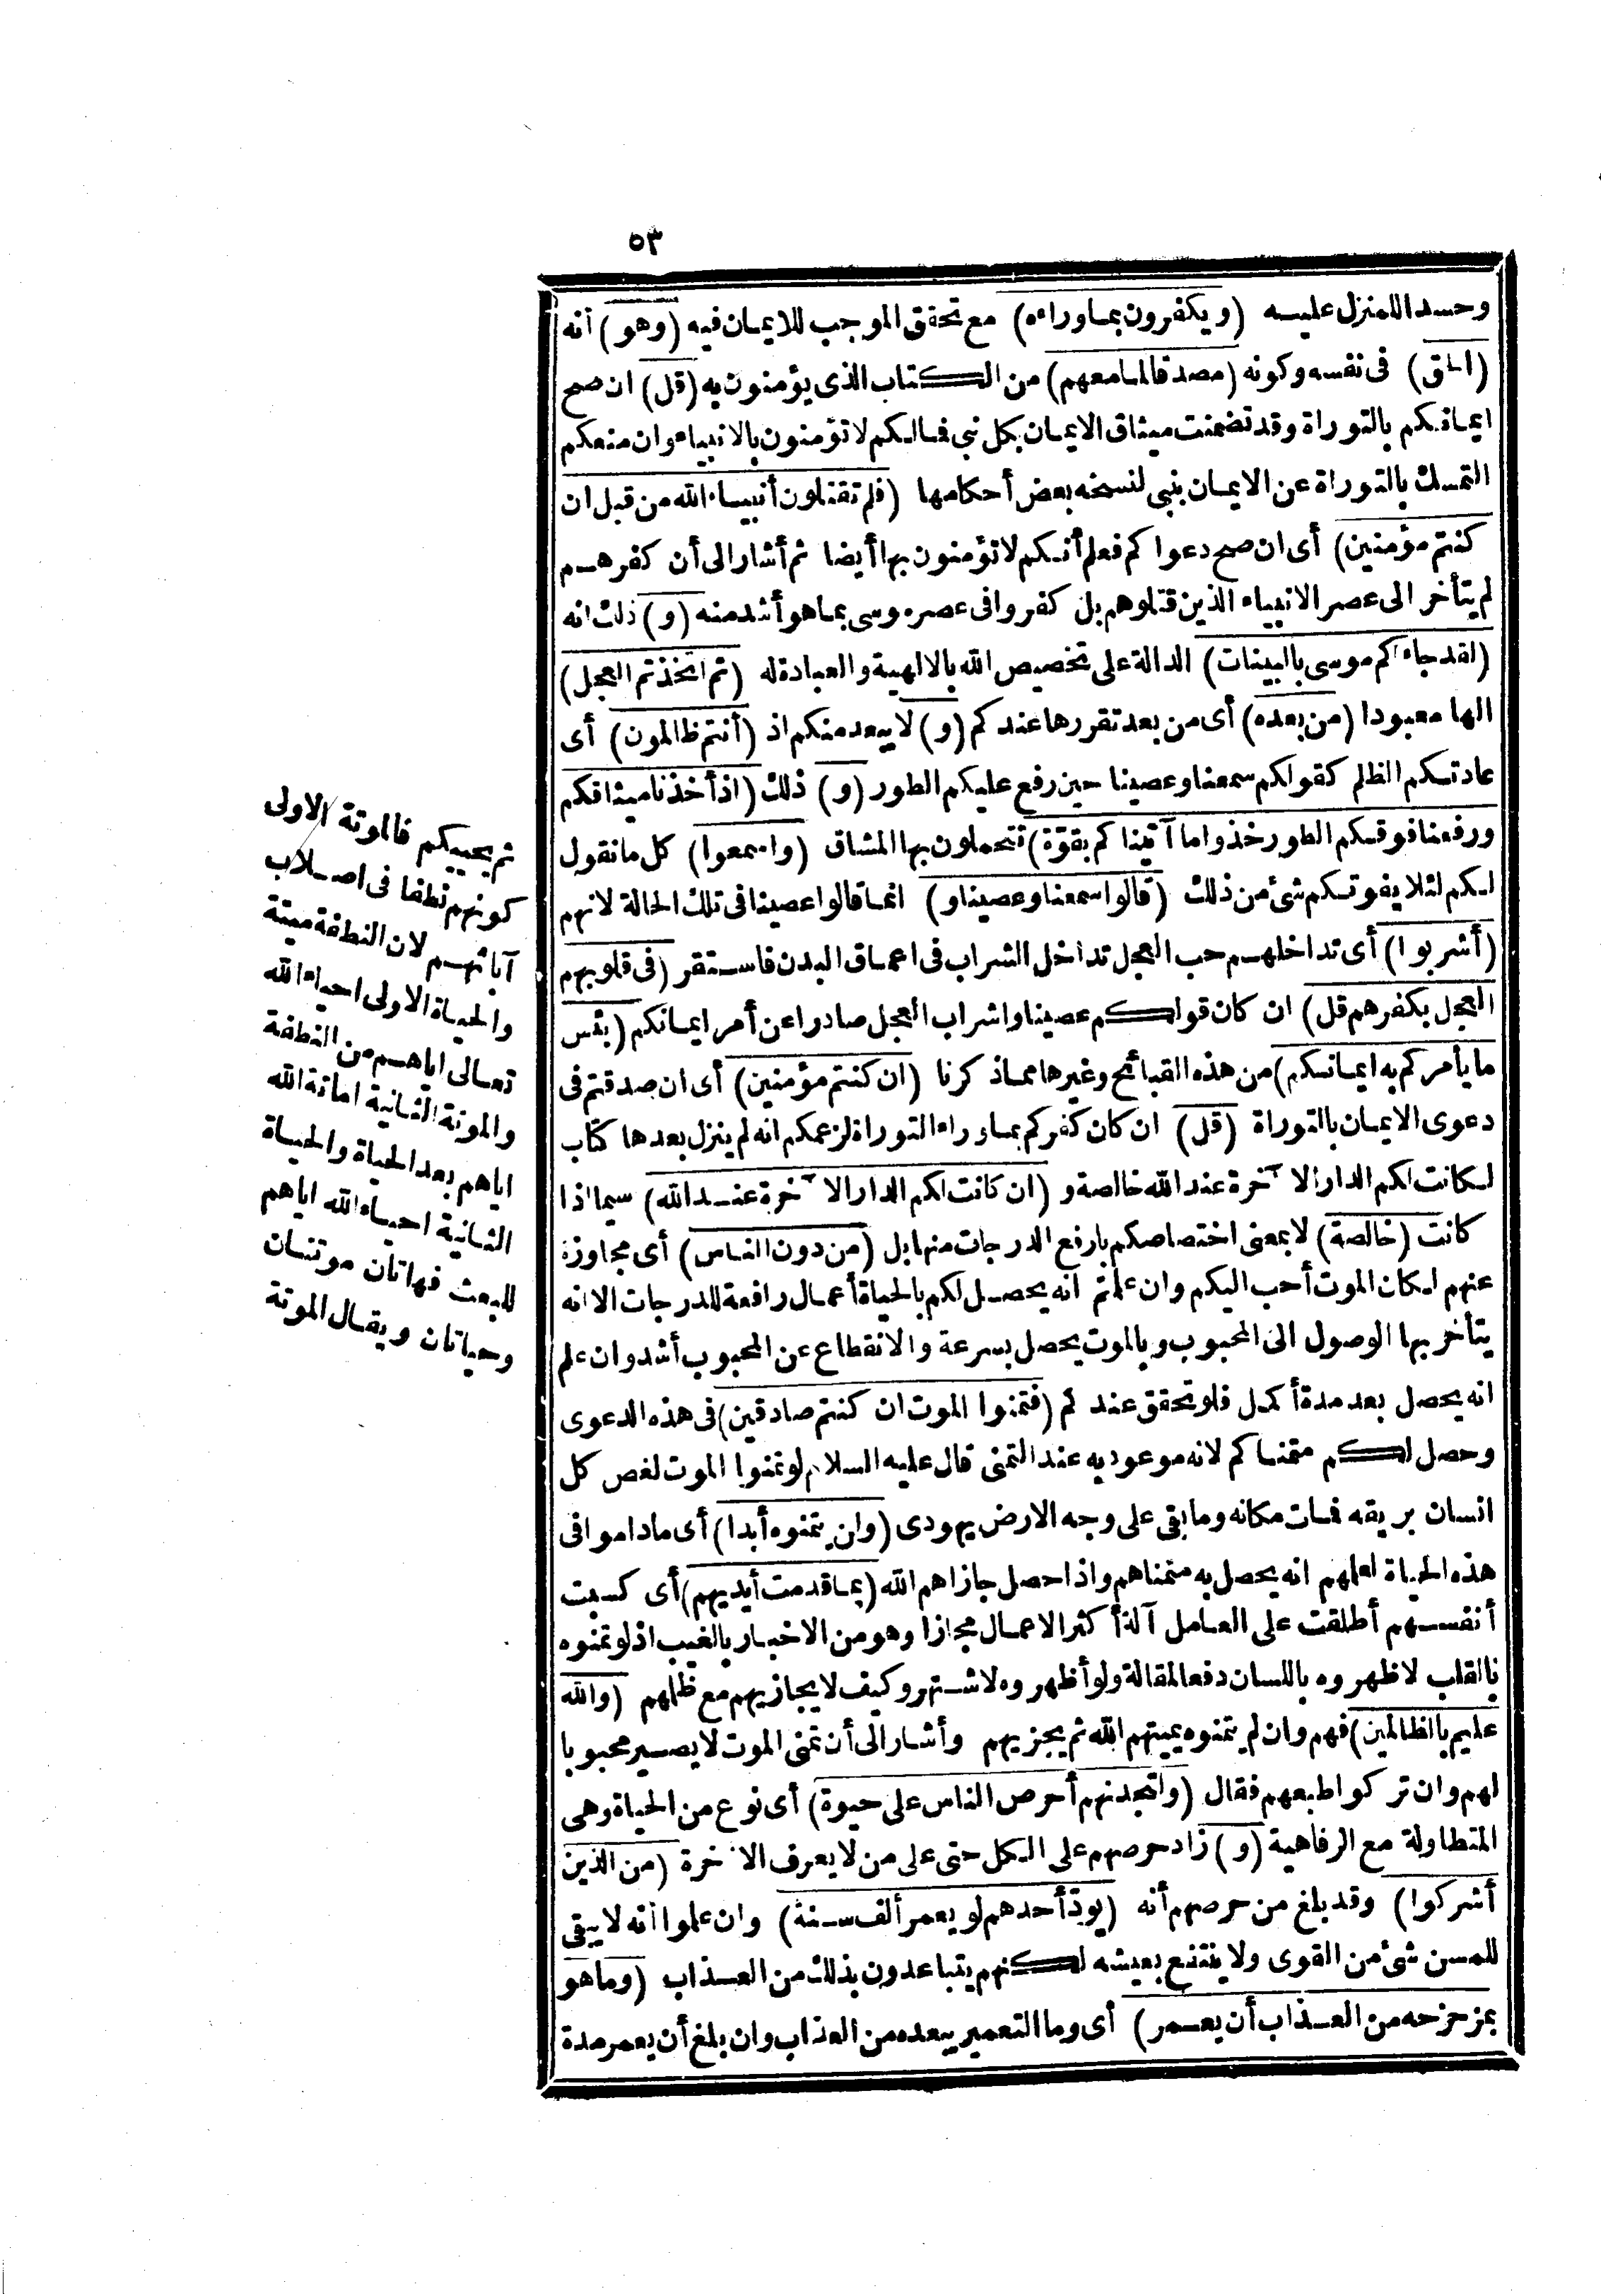 ٥٣
وحسدا للمنزل عليه (ويكفرون بما وراءه) مع تحقق الموجب للايمان فيه (وهو) أنه
(الحق) فى نفسه وكونه (مصدقا لما معهم) من الكتاب الذى يؤمنون به (قل) ان صح
ايمانكم بالتوراة وقد تضمنت ميثاق الايمان بكل نبى فمالكم لا تؤمنون بالانبياء وان منعكم
التمسك بالتوراة عن الايمان بنبى لنسخه بعض أحكامها (فلم تقتلون أنبياء الله من قبل ان
كنتم مؤمنين) أى ان صح دعواكم فعلم أنكم لا تؤمنون بها أيضا ثم أشار الى أن كفرهم
لم يتأخر الى عصر الانبياء الذين قتلوهم بل كفروا فى عصر موسى بما هو أشد منه (و) ذلك انه
(لقد جاءكم موسى بالبينات) الدالة على تخصيص الله بالالهية والعبادة له (ثم اتخذتم العجل)
الها معبودا (من بعده) أى من بعد تقررها عندكم (و) لا يبعد منكم اذ (أنتم ظالمون) أى
عادتكم الظلم كقولكم سمعنا وعصينا حين رفع عليكم الطور (و) ذلك (اذ أخذنا ميثاقكم
ورفعنا فوقكم الطور خذوا ما آتيناكم بقوّة) فتحملون بها المشاق (واسمعوا) كل ما نقول
لكم لئلا يفوتكم شئ من ذلك (قالوا سمعنا وعصينا و) انما قالوا عصينا فى تلك الحالة لانهم
(أشربوا) أى تداخلهم حب العجل تداخل الشراب فى اعماق البدن فاستقر (فى قلوبهم
العجل بكفرهم قل) ان كان قولكم عصينا واشراب العجل صادرا عن أمر ايمانكم (بئس
ما يأمركم به ايمانكم) من هذه القبائح وغيرها مما ذكرنا (ان كنتم مؤمنين) أى ان صدقتم فى
دعوى الايمان بالتوراة (قل) ان كان كفركم بما وراء التوراة لزعمكم انه لم ينزل بعدها كتاب
لكانت لكم الدار الآخرة عند الله خالصة و (ان كانت لكم الدار الآخرة عند الله) سيما اذا
كانت (خالصة) لا بمعنى اختصاصكم بارفع الدرجات منها بل (من دون الناس) أى مجاوزة
عنهم لكان الموت أحب اليكم وان علمتم انه يحصل لكم بالحياة أعمال رافعة للدرجات الا انه
يتأخر بها الوصول الى المحبوب وبالموت يحصل بسرعة والانقطاع عن المحبوب أشد وان علم
انه يحصل بعد مدة أكمل فلو تحقق عندكم (فتمنوا الموت ان كنتم صادقين) فى هذه الدعوى
وحصل لكم متمناكم لانه موعود به عند التمنى قال عليه السلام لو تمنوا الموت لغص كل
انسان بريقه فمات مكانه وما بقى على وجه الارض يهودى (ولن يتمنوه أبدا) أى ماداموا فى
هذه الحياة لعلهم انه يحصل به متمناهم واذا حصل جازاهم الله (بما قدمت أيديهم) أى كسبت
أنفسهم أطلقت على العامل آلة أكثر الاعمال مجازا وهو من الاخبار بالغيب اذ لو تمنوه
بالقلب لاظهروه باللسان دفعا لمقالة ولو أظهروه لاشتهر وكيف لا يجازيهم مع ظلمهم (والله
عليم بالظالمين) فهم وان لم يتمنوه يميتهم الله ثم يجزيهم وأشار الى أن تمنى الموت لا يصير محبوبا
لهم وان تركوا طبعهم فقال (ولتجدنهم أحرص الناس على حيوة) أى نوع من الحياة وهى
المتطاولة مع الرفاهية (و) زاد حرصهم على الكل حتى على من لا يعرف الآخرة (من الذين
أشركوا) وقد بلغ من حرصهم أنه (يودّ أحدهم لو يعمر ألف سنة) وان علموا أنه لا يبقى
للمسن شئ من القوى ولا ينتفع بعيشه لكنهم يتباعدون بذلك من العذاب (وما هو
بمزحزحه من العذاب أن يعمر) أى وما التعمير يبعده من العذاب وان بلغ أن يعمر مدة
ثم يحييكم فالموتة الاولى
كونهم نطفا فى اصلاب
آبائهم لان النطفة ميتة
والحياة الاولى احياء الله
تعالى اياهم من النطفة
والموتة الثانية اماتة الله
اياهم بعد الحياة والحياة
الثانية احياء الله اياهم
للبعث فهاتان موتتان
وحياتان ويقال الموتة